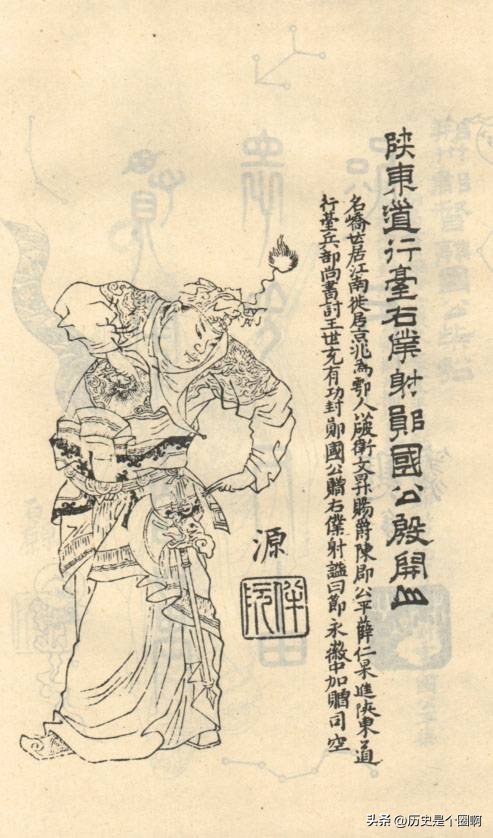 陝東道行臺右僕射鄖國公殷開山
名嶠世居江南徙居京兆為鄠人以破衛文昇賜爵陳郡公平薛仁杲進陝東道
行臺兵部尚書討王世充有功封鄖國公贈右僕射謚曰節永徽中加贈司空
源
伴阮
头条 @历史是个圈啊